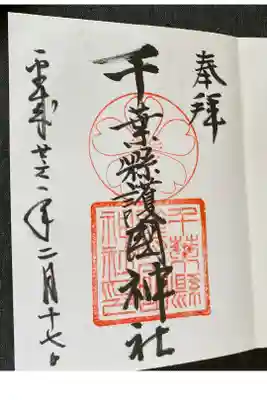 奉拝
千葉縣護國神社
平成年二月十七日
千葉縣
護國
神社印